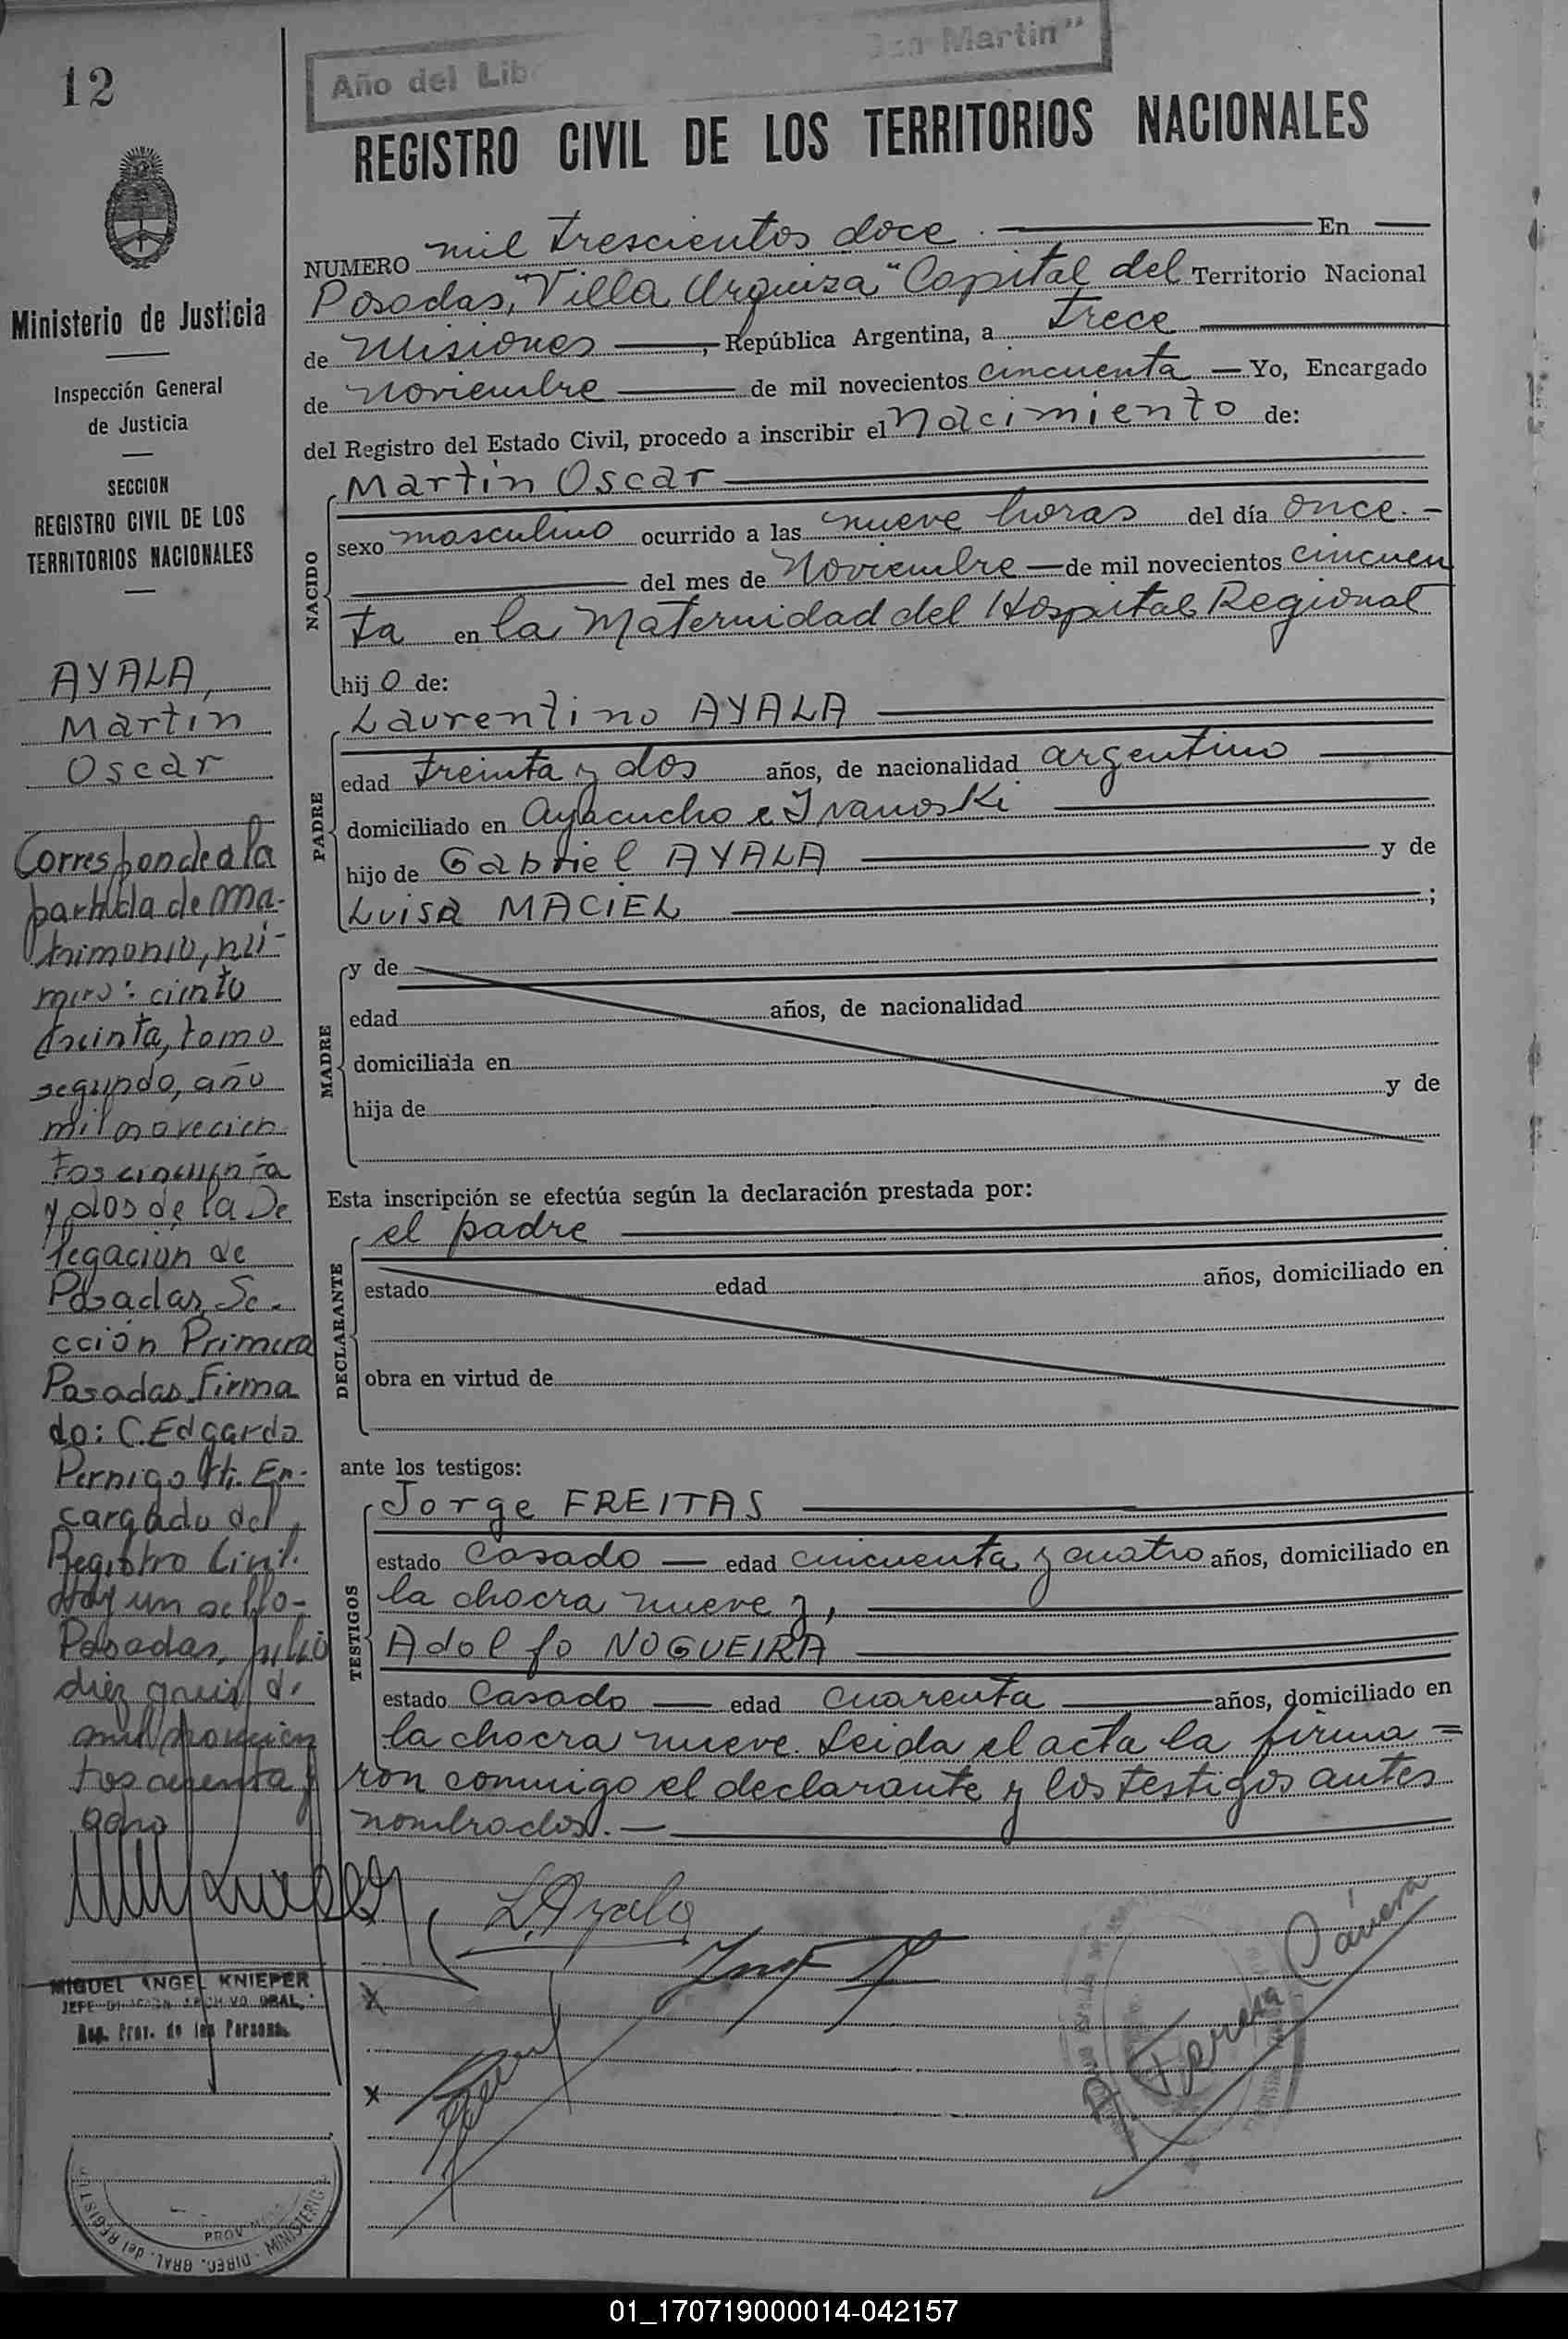 12
Año del Lib
San Martin"
REGISTRO CIVIL DE LOS TERRITORIOS NACIONALES
NUMERO mil trescientos doce. En
Posadas, "Villa Urquiza" Capital del Territorio Nacional
de Misiones, República Argentina, a trece
de noviembre de mil novecientos cincuenta Yo, Encargado
del Registro del Estado Civil, procedo a inscribir el Nacimiento de:
NACIDO
Martin Oscar
sexo masculino ocurrido a las nueve horas del día once.-
del mes de Noviembre de mil novecientos cincuen
ta en la Maternidad del Hospital Regional
hijo de:
PADRE
Laurentino AYALA
edad treinta y dos años, de nacionalidad argentino
domiciliado en Ayacucho e Ivanoski
hijo de Gabriel AYALA y de
Luisa MACIEL ;
MADRE
y de
edad años, de nacionalidad
domiciliada en
hija de y de
Esta inscripción se efectúa según la declaración prestada por:
DECLARANTE
el padre
estado edad años, domiciliado en
obra en virtud de
ante los testigos:
TESTIGOS
Jorge FREITAS
estado Casado edad cincuenta y cuatro años, domiciliado en
la chacra nueve y,
Adolfo NOGUEIRA
estado Casado edad cuarenta años, domiciliado en
la chacra nueve. Leida el acta la firma=
ron conmigo el declarante y los testigos antes
nombrados.-
L. Ayala
Ministerio de Justicia
Inspección General
de Justicia
SECCION
REGISTRO CIVIL DE LOS
TERRITORIOS NACIONALES
AYALA,
Martin
Oscar
Corresponde a la
partida de ma-
trimonio, nú-
mero: ciento
treinta, tomo
segundo, año
mil novecien
tos cincuenta
y dos de la De
legación de
Posadas, Se-
cción Primera
Posadas. Firma
do: C. Edgardo
Pernigotti. En-
cargado del
Registro Civil.
Hay un sello-
Posadas, julio
diez y seis de
mil novecien
tos ochenta y
ocho
MIGUEL ANGEL KNIEPER
Reg. Prov. de las Personas
PROV
DIREC. GRAL. del REGIST
MINISTERIO
01_170719000014-042157